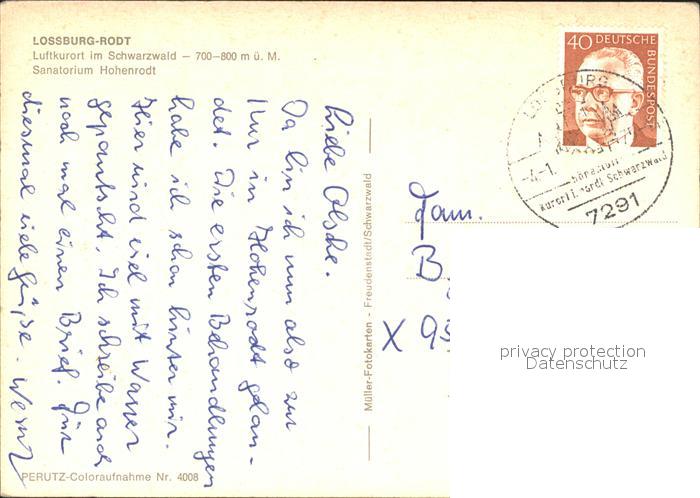 LOSSBURG-RODT
Luftkurort im Schwarzwald — 700–800 m ü. M.
Sanatorium Hohenrodt
Da bin ich nun also zur
Kur in Hohenrodt gelan-
det. Die ersten Behandlungen
habe ich schon hinter mir.
Hier wird viel mit Wasser
gepantscht. Ich schreibe auch
noch mal einen Brief. Für
diesmal viele Grüße. Werner
PERUTZ-Coloraufnahme Nr. 4008
Müller-Fotokarten - Freudenstadt/Schwarzwald
40 DEUTSCHE
BUNDESPOST
Kurort i. nördl. Schwarzwald
7291
Fam.
B
X 95
privacy protection
Datenschutz